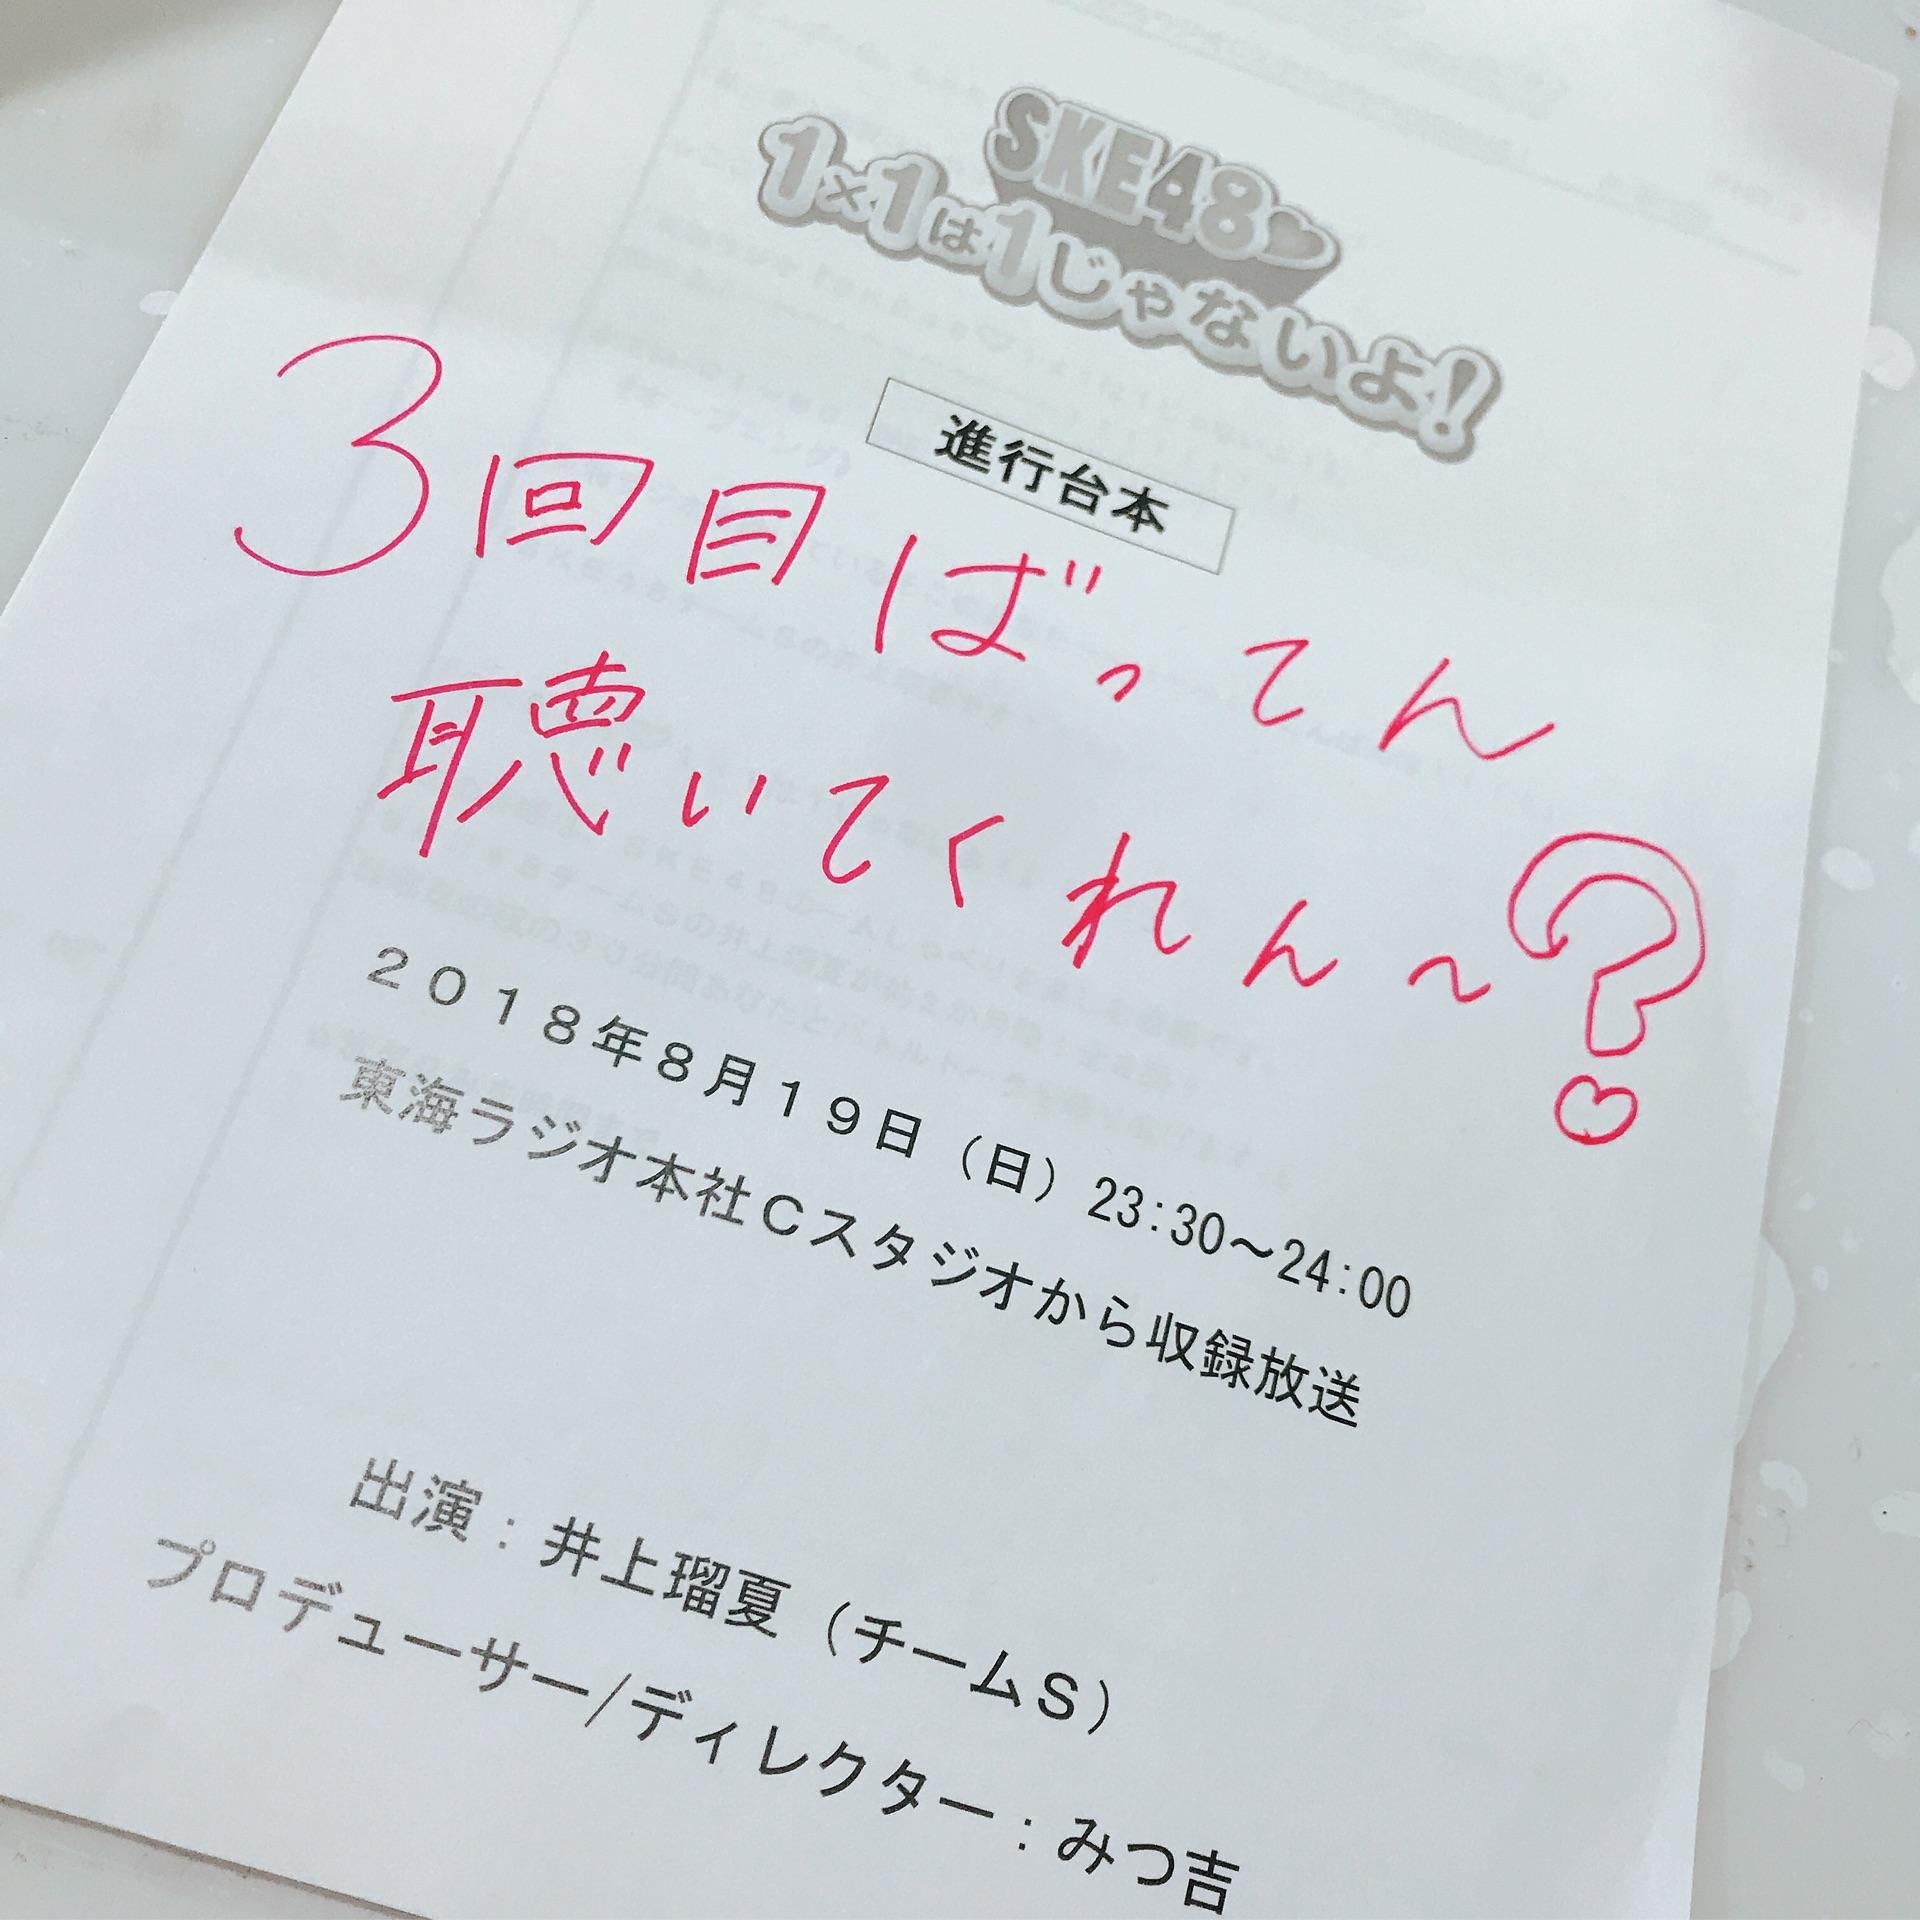 SKE48♥
1×1は1じゃないよ!
進行台本
3回目ばってん
聴いてくれん〜?
2018年8月19日（日）23:30〜24:00
東海ラジオ本社Cスタジオから収録放送
出演：井上瑠夏（チームS）
プロデューサー/ディレクター：みつ吉